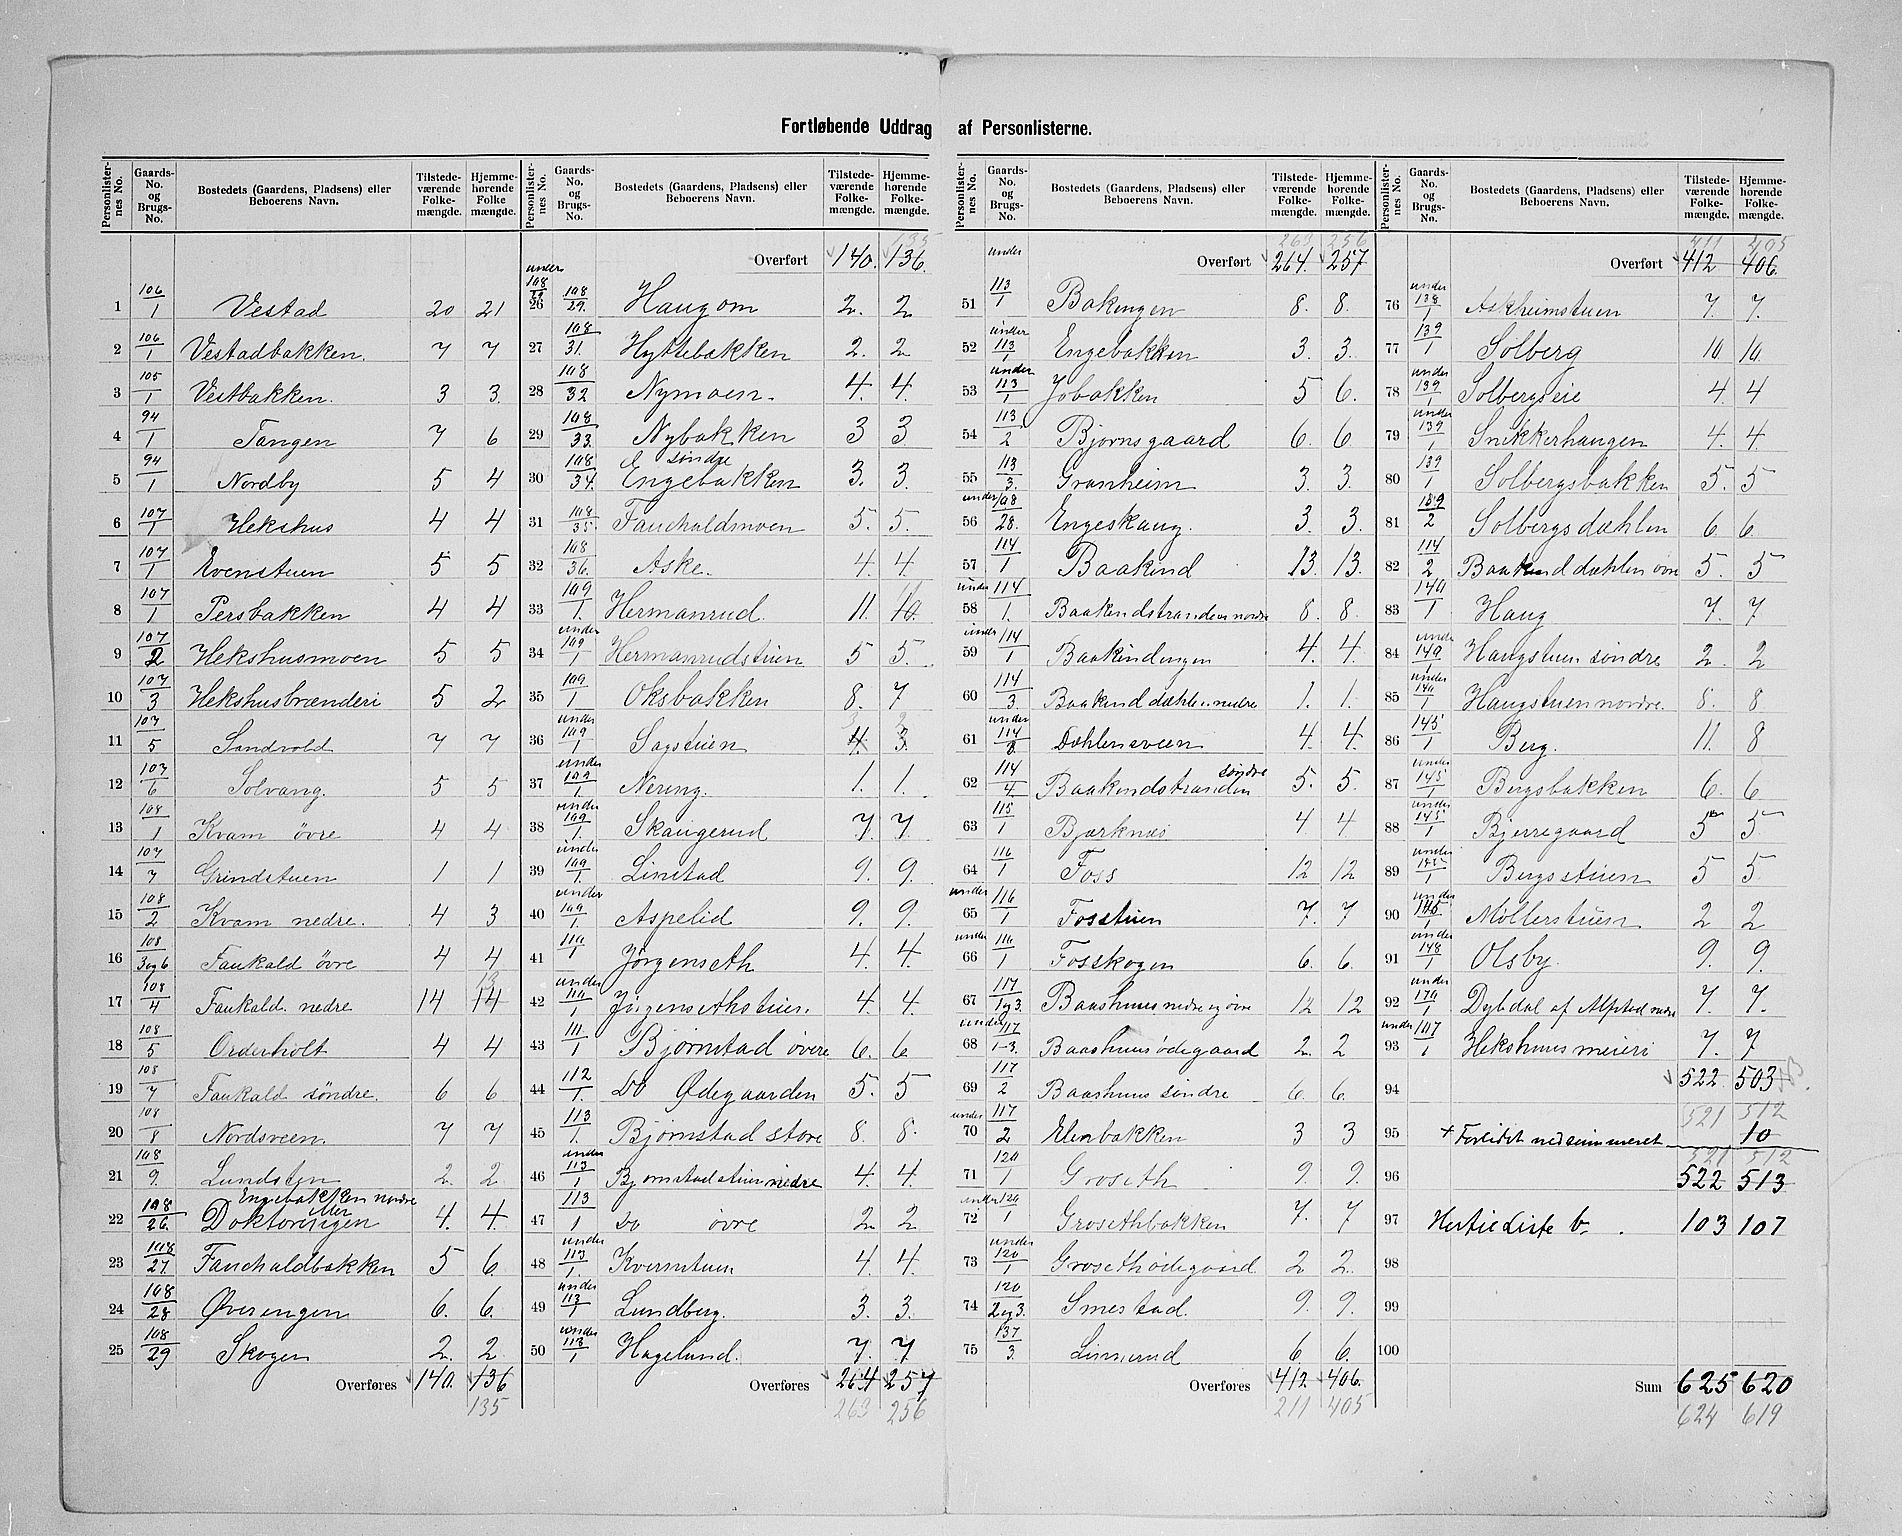 Fortløbende Uddrag af Personlisterne.
Personlisternes No. Gaards-No. og Brugs-No. Bostedets (Gaardens, Pladsens) eller Beboerens Navn. Tilstedeværende Folkemængde. Hjemmehørende Folkemængde.
1 106/1 Vestad 20 21
2 106/1 Vestadbakken. 7 7
3 105/1 Vestbakken. 3 3
4 94/1 Tangen 7 6
5 94/1 Nordby 5 4
6 107/1 Hekshus 4 4
7 107/1 Evenstuen 5 5
8 107/1 Persbakken 4 4
9 107/2 Hekshusmoen 5 5
10 107/3 Hekshusbrænderi 5 2
11 107/5 Sandvold 7 7
12 107/6 Solvang. 5 5
13 108/1 Kvam øvre 4 4
14 107/7 Grindstuen 1 1
15 108/2 Kvam nedre. 4 3
16 108/3og6 Faukald øvre 4 4
17 108/4 Faukald nedre 14 14 13
18 108/5 Orderholt 4 4
19 108/7 Faukald søndre. 6 6
20 108/8 Nordsveen. 7 7
21 108/9. Lundsten 2 2
22 108/26. Engebakken nordre eller Doktorengen 4. 4.
23 108/27. Fauchaldbakken 5 6.
24 108/28 Øverengen 6. 6.
25 108/29 Skogen 2. 2
Overføres 140. 136
135
Personlisternes No. Gaards-No. og Brugs-No. Bostedets (Gaardens, Pladsens) eller Beboerens Navn. Tilstedeværende Folkemængde. Hjemmehørende Folkemængde.
135
Overført 140. 136.
26 under 108/29 108/29. Haugom 2. 2
27 108/31. Hyttebakken 2. 2.
28 108/32 Nymoen. 4. 4.
29 108/33. Nybakken 3 3
30 108/34. Engebakken søndre 3. 3.
31 108/35. Fauchaldmoen 5. 5.
32 108/36. Aske. 4. 4.
33 109/1. Hermanrud. 11. 10.
34 under 109/1 Hermanrudstuen 5 5.
35 109/1 Oksbakken 8. 7
36 under 109/1 Sagstuen 4 3. 3 2
37 under 109/1. Nering. 1. 1.
38 under 109/1. Skaugerud 7. 7
39 under 109/1. Linstad 9. 9.
40 under 109/1. Aspelid 9. 9.
41 110/1 Jørgenseth 4. 4.
42 under 110/1 Jørgensethstuen. 4. 4.
43 111/1 Bjørnstad øvre 6. 6.
44 112/1. Do Ødegaarden 5. 5
45 113/1. Bjørnstad store 8. 8.
46 under 113/1 Bjørnstadstuen nedre 4. 4.
47 113/1 Do øvre 2 2
48 under 113/1. Kvernstuen 4 4.
49 under 113/1 Lundberg. 3. 3.
50 under 113/1 Hagelund. 7. 7
Overføres 264 257
263 256
Personlisternes No. Gaards-No. og Brugs-No. Bostedets (Gaardens, Pladsens) eller Beboerens Navn. Tilstedeværende Folkemængde. Hjemmehørende Folkemængde.
263 256
Overført 264. 257
51 under 113/1 Bakengen 8. 8.
52 under 113/1 Engebakken 3. 3.
53 under 113/1 Jobakken 5 6.
54 113/2 Bjørnsgaard 6. 6
55 113/3. Granheim 3. 3.
56 under 108/28. Engeskaug. 3. 3.
57 114/1 Baakind 13. 13.
58 under 114/1. Baakindstranden nordre 8. 8.
59 under 114/1 Baakindengen 4. 4.
60 114/3. Baakind dæhlen nedre 1. 1.
61 under 114/8 Dæhlensveen 4. 4.
62 114/4. Baakindstranden søndre 5. 5.
63 115/1 Bjerknæs 4 4.
64 116/1 Foss 12 12
65 under 116/1 Fosstuen 7. 7
66 under 116/1 Fosskogen 6. 6.
67 117/1og3. Baashuus nedre og øvre 12 12
68 under 117/1-3. Baashuusødegaard 2. 2
69 117/2 Baashuus søndre 6. 6.
70 under 117/2 Elenbakken 3 3
71 120/1 Groseth 9. 9.
72 under 120/1 Grosethbakken 7. 7
73 under 120/1 Grosethødegaard 2 2.
74 120/2og3. Smestad. 9. 9.
75 137/3. Linnerud 6 6.
Overføres 412 406.
211 405
Personlisternes No. Gaards-No. og Brugs-No. Bostedets (Gaardens, Pladsens) eller Beboerens Navn. Tilstedeværende Folkemængde. Hjemmehørende Folkemængde.
411 405
Overført 412 406.
76 under 138/1 Askheimstuen 7. 7.
77 139/1 Solberg 10. 10.
78 under 139/1 Solbergseie 4. 4
79 under 139/1 Snikkerhaugen 4. 4
80 139/1 Solbergsbakken 5. 5
81 139/2 Solbergsdæhlen 6. 6.
82 114/2 Baakind dæhlen øvre 5. 5
83 140/1 Haug 7. 7
84 under 140/1 Haugstuen søndre 2. 2
85 under 140/1 Haugstuen nordre. 8. 8
86 145/1 Berg. 11. 8
87 under 145/1 Bergsbakken 6. 6
88 under 145/1 Bjerregaard 5 5
89 under 145/1 Bergsstuen 5 5.
90 under 145/1 Møllerstuen 2 2
91 under 148/1 Olsby. 9. 9.
92 under 170/1 Dybdal af Alfstad nedre 7. 7.
93 under 107/1 Hekshuus meieri 7. 7
94 522 503
521 512
95 + Forlidet nedsummeret 10
521 512
96 522 513
97 Hertil Liste b. 103 107
98
99
100
Sum 625 620
624 619